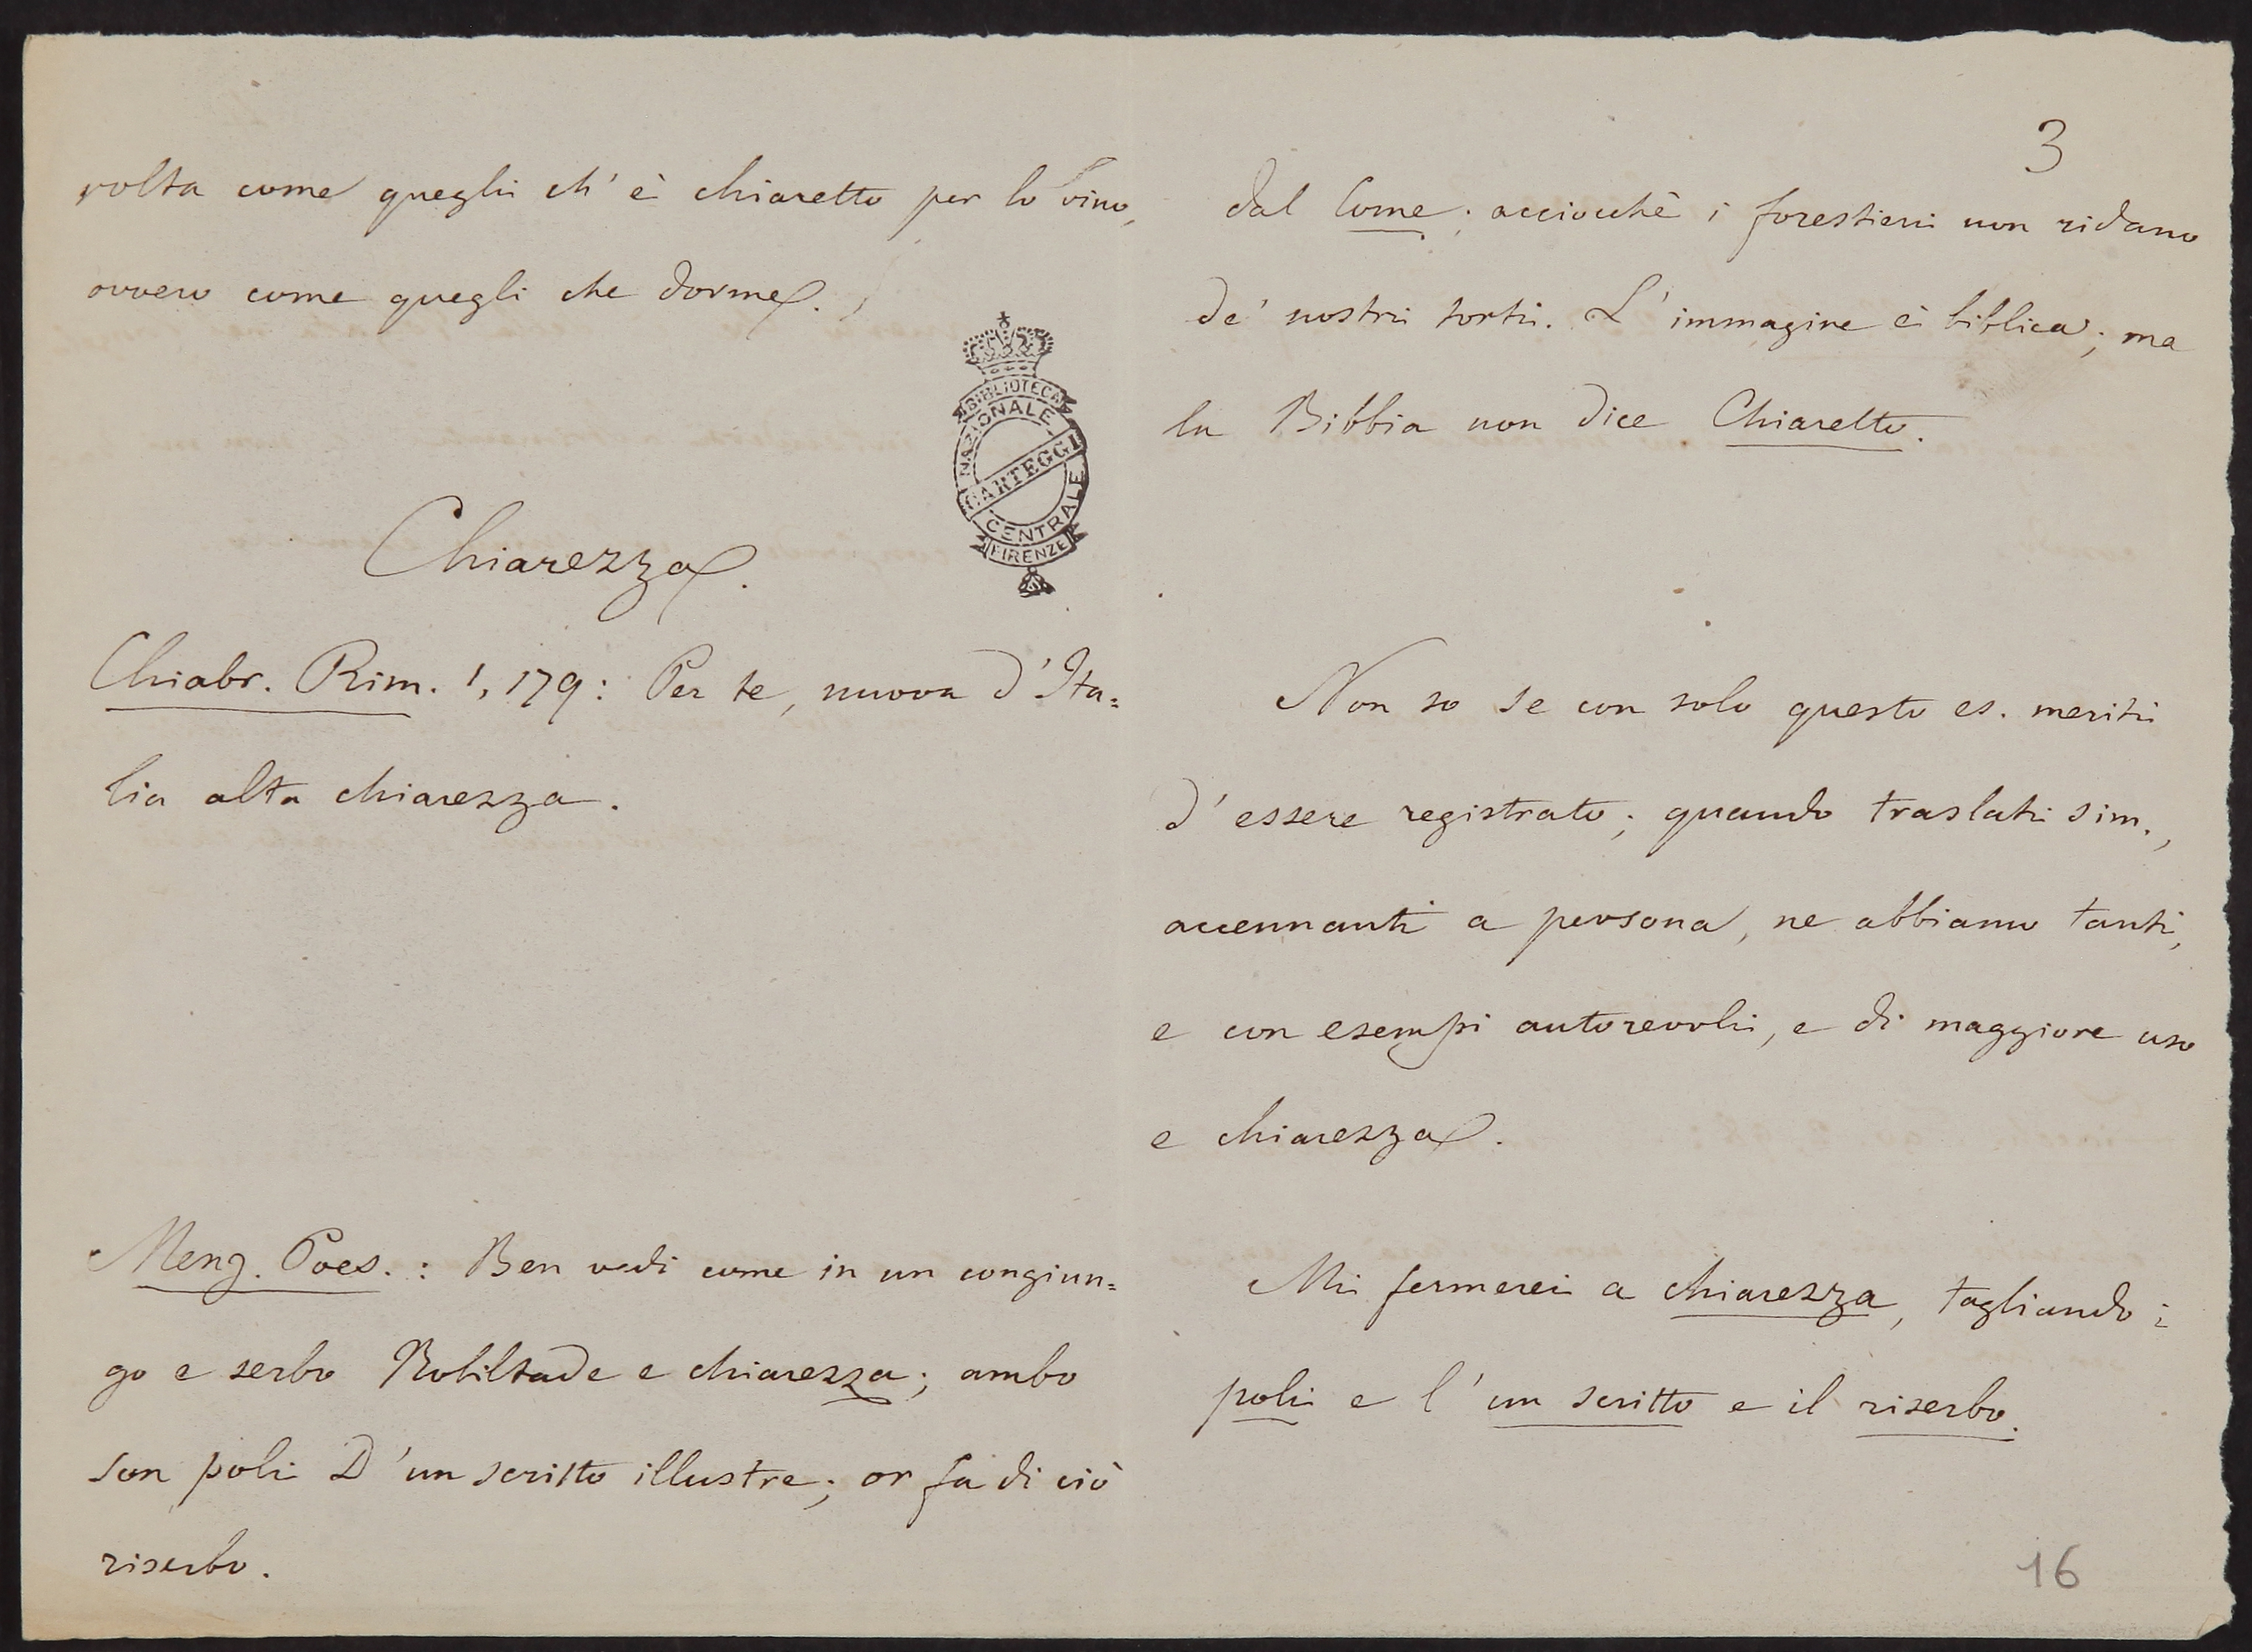 volta come queglii ch'è chiaretto per lo vino,
ovvero come quegli che dorme.
BIBLIOTECA
NAZIONALE
CARTEGGI
CENTRALE
FIRENZE
Chiarezza.
Chiabr. Rim. 1, 179: Per te, nuova d'Ita=
lia alta chiarezza.
Meng. Poes.: Ben vedi come in un congiun=
go e serbo Nobiltade e chiarezza; ambo
son poli D'un scritto illustre; or fa di ciò
riserbo.
3
dal Come; acciocchè i forestieri non ridano
de' nostri torti. L'immagine è biblica; ma
la Bibbia non dice Chiaretto.
Non so se con solo questo es. meriti
d'essere registrato; quando traslati sim.,
accennanti a persona, ne abbiamo tanti,
e con esempi autorevoli, e di maggiore uso
e chiarezza.
Mi fermerei a chiarezza, tagliando i
poli e l'un scritto e il riserbo.
16